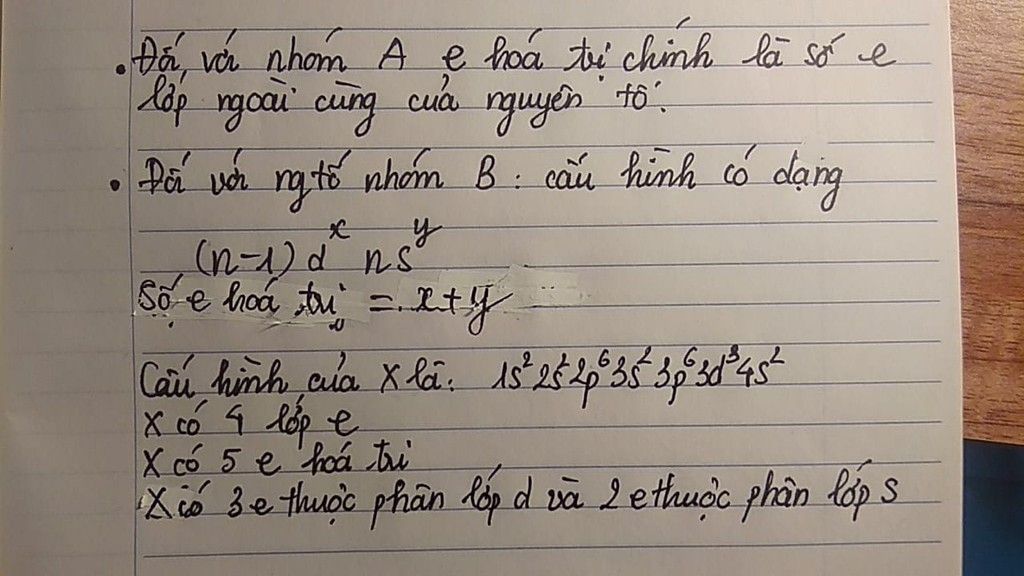 • Đối với nhóm A e hoá trị chính là số e
lớp ngoài cùng của nguyên tố.
• Đối với ngtố nhóm B : cấu hình có dạng
(n-1) dˣ nsʸ
Số e hoá trị = x+y
Cấu hình của X là: 1s²2s²2p⁶3s²3p⁶3d³4s²
X có 4 lớp e
X có 5 e hoá trị
X có 3 e thuộc phân lớp d và 2 e thuộc phân lớp s